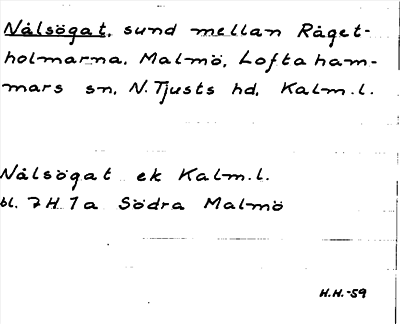 Nålsögat, sund mellan Råget-
holmarna, Malmö, Loftaham-
mars sn, N. Tjusts hd, Kalm.l.
Nålsögat ek Kalm.l.
bl. 7H 1a Södra Malmö
H.H.-59